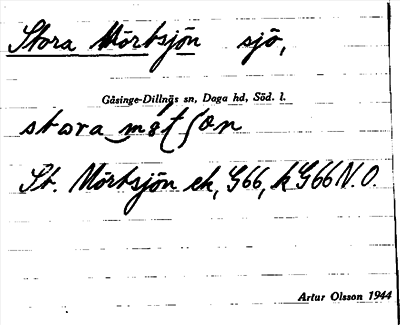 Stora Mörtsjön sjö,
Gåsinge-Dillnäs sn, Daga hd, Söd. l.
St. Mörtsjön ek, G66, k G66 N.O.
Artur Olsson 1944